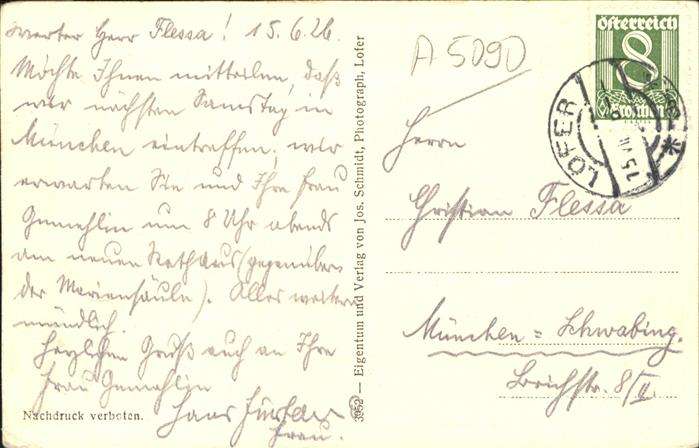 Werter Herr Flessa! 15.6.26.
Möchte Ihnen mitteilen, daß
wir nächsten Samstag in
München eintreffen, wir
erwarten Sie und Ihre Frau
Gemahlin um 8 Uhr abends
am neuen Rathaus (gegenüber
der Mariensäule). Alles weitere
mündlich.
Herzlichen Gruß auch an Ihre
Frau Gemahlin
Hans
Frau.
Nachdruck verboten.
3952 — Eigentum und Verlag von Jos. Schmidt, Photograph, Lofer
A 5090
Österreich
8
Groschen
LOFER
15 VI
Herrn
Christian Flessa
München = Schwabing.
8/II